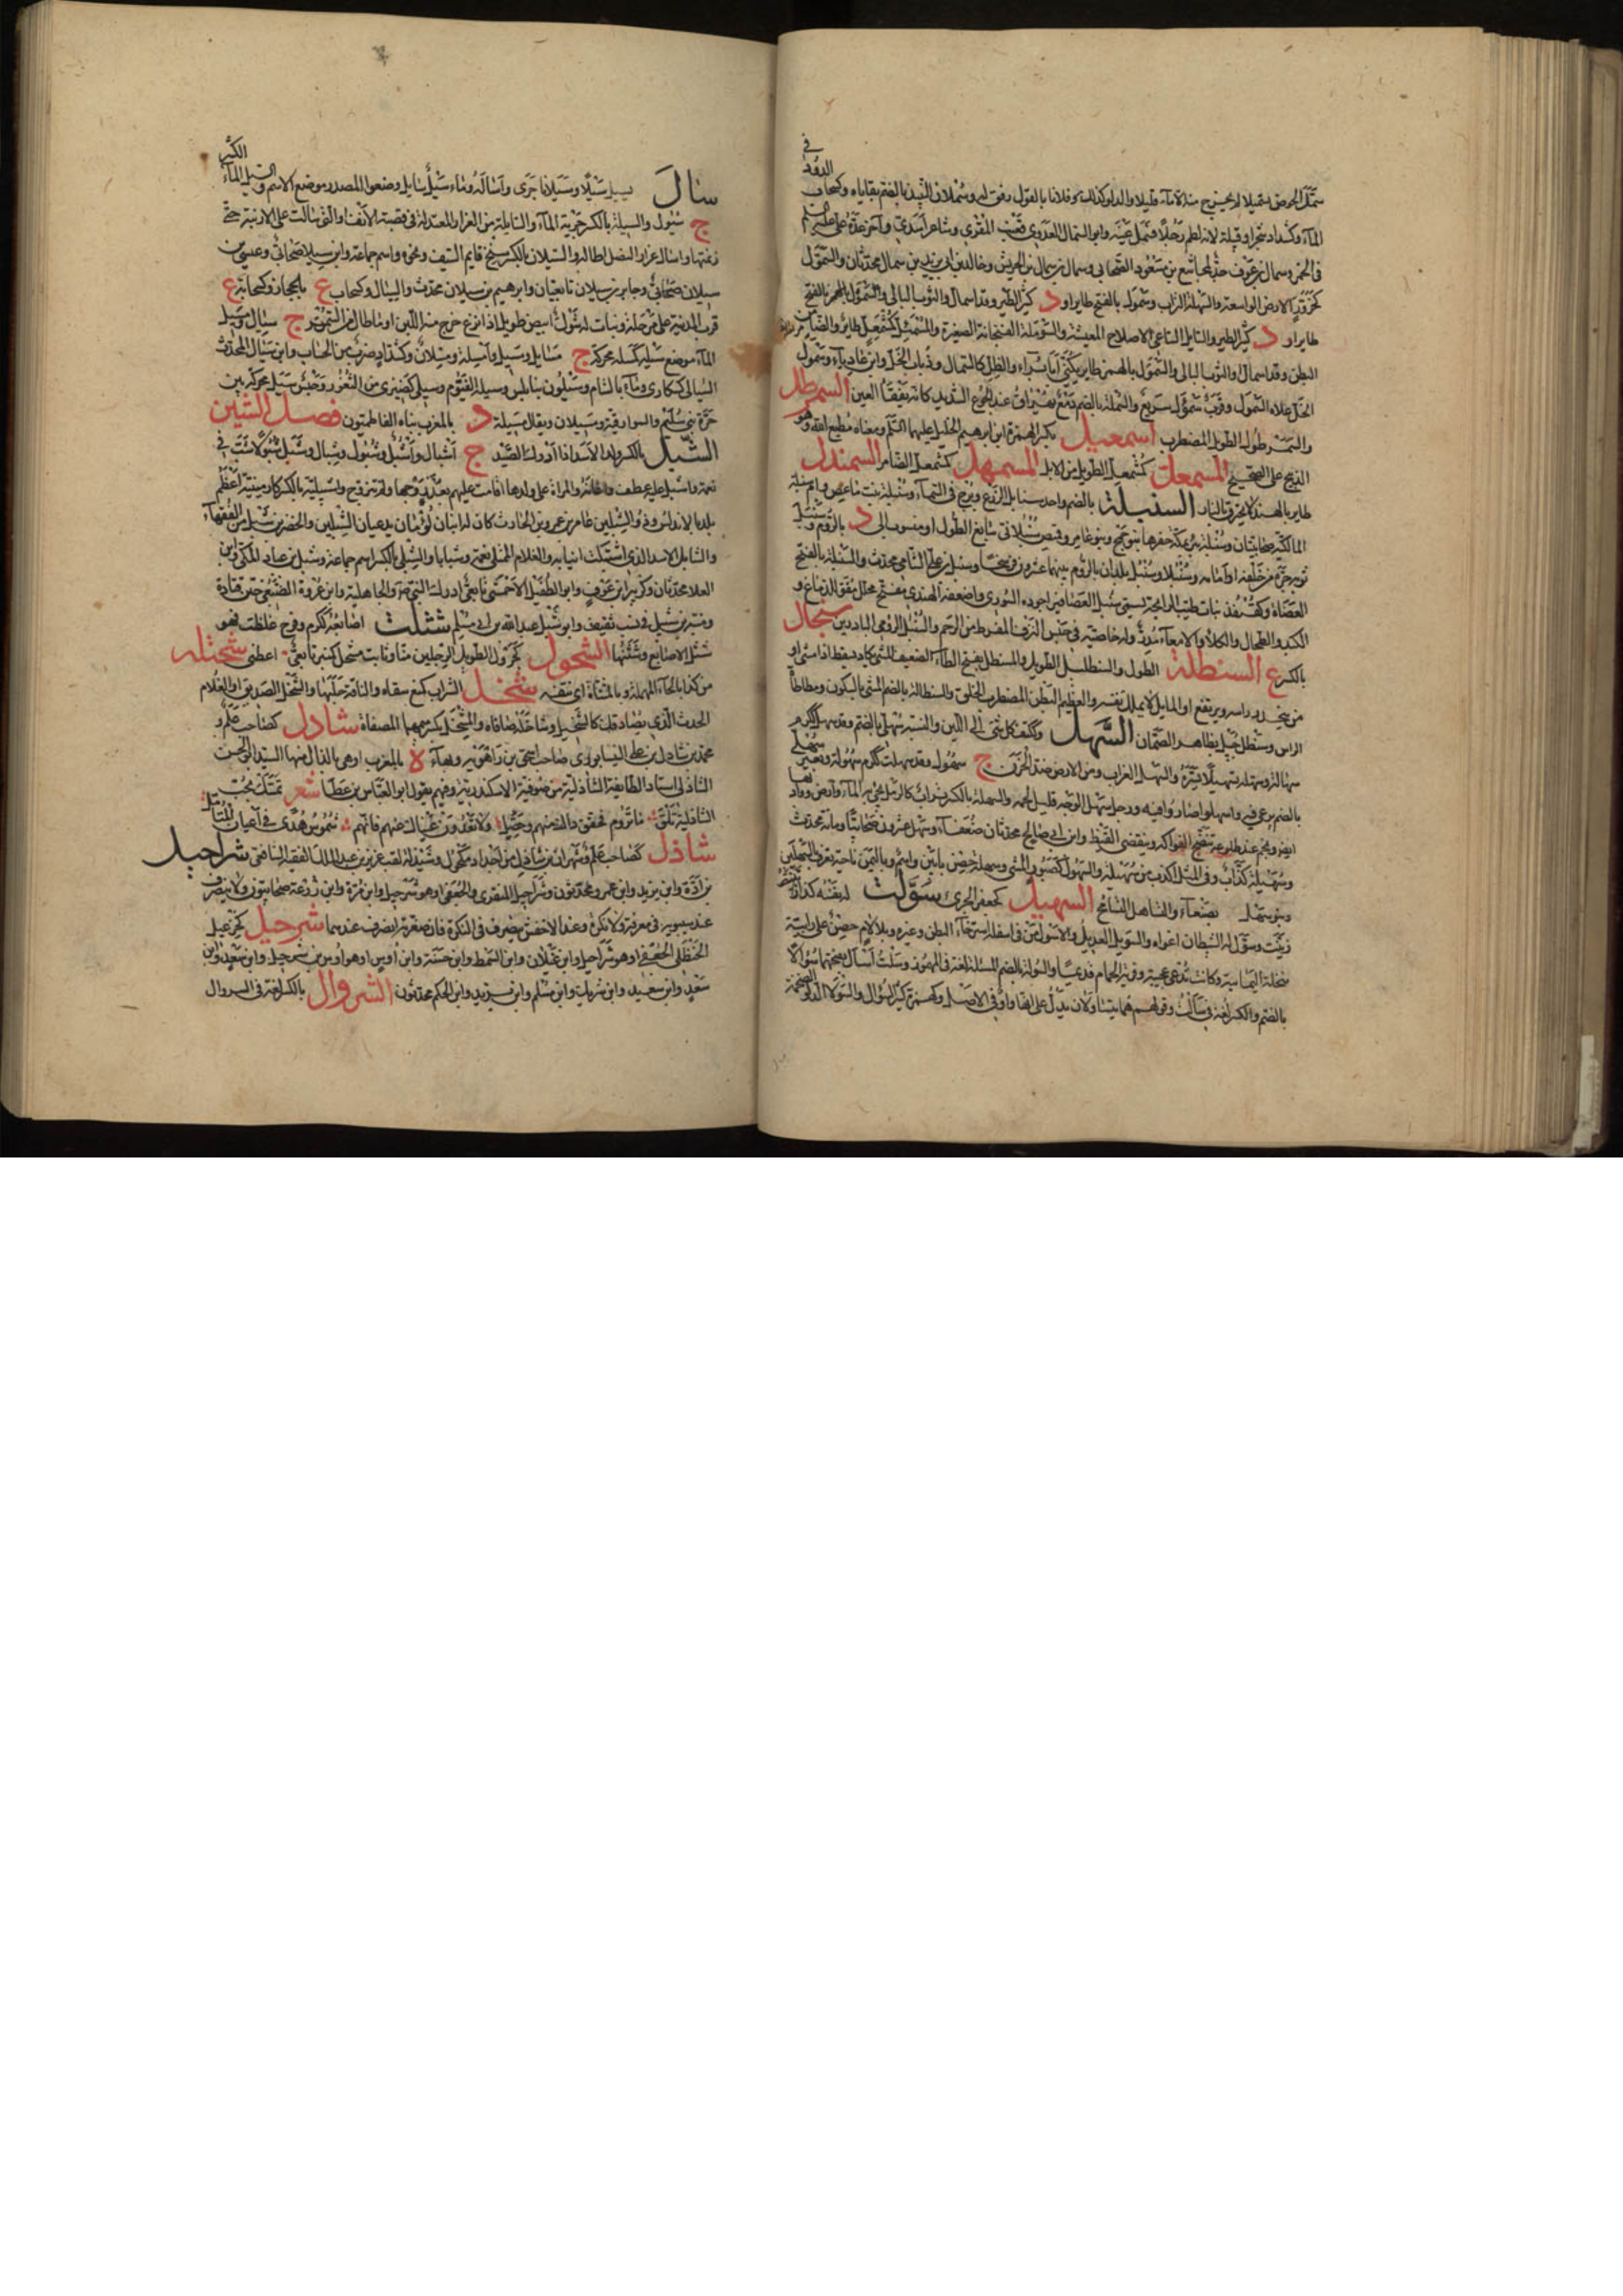 في
الدود
سمل الحوض تسميلا لم يخرج منه الا ماء قليل والدلو كذلك وفلانا بالقول رفق له وسملان النبيذ بالضم بقاياه وكسحاب
الماء وكشداد شجر او قبيلة لانه لطم رجلا فسمل عينه وابو السمال العدوي قعنب المقري وشاعر اسدي وآخر
في الخمر وسمال بن عوف جد لمجاشع بن مسعود الصحابي وسمال بن الحريش وخالد بن ابي يزيد بن سمال محدثان والسمول
كحزور الارض الواسعة والسهلة التراب وسمول بالفتح طاير او د كثير الطير وقد اسمال والثوب البالي
طاير او د كثير الطير والسامل الساعي لاصلاح المعيشة والسوملة الفنجانة الصغيرة والمسمئل كمشمعل طائر والضامر
البطن وقد اسمال والثوب البالي والسمول بالهمز طاير يكنى ابا براء والظل كالسمال وذباب الخل وابن عادياء وسمول
الخل علاه السمول وقرب سمول سريع والسملة بالضم دمع يهراق عند الجوع الشديد كانه يفقأ العين السمرطل
والسمرطول الطويل المضطرب اسمعيل بكسر الهمزة ابن ابرهيم الخليل عليهما السلم ومعناه مطيع الله وهو
الذبيح على الصحيح المسمعل كمشمعل الطويل من الابل المسمهل كمشمعل الضامر السمندل
طاير بالهند لا يحترق بالنار السنبلة بالضم واحد سنابل الزرع وبرج في السماء وسنبلة بنت ماعص وام سنبلة
المالكية صحابيتان وسنبلة بئر بمكة حفرها بنو جمح وبنو عامر وقميص سنبلاني سابغ الطول او منسوب الى د بالروم وسنبل
ثوبه جره من خلفه او امامه وسنبلا وسنبل بلدان بالروم بينهما عشرون فرسخا وسنبل رجل
العضاه وكقنفذ نبات طيب الرائحة يسمى سنبل العصافير اجوده السوري واضعفه الهندي مفتح محلل مقو للدماغ و
الكبد والطحال والكلا والامعاء مدر وله خاصية في حبس النزف المفرط من الرحم والسنبل الرومي الناردين سنجال
بالكسر ع السنطلة الطول والسنطليل الطويل والمسنطل بفتح الطاء الضعيف المشي يكاد يسقط اذا مشى او
من ينحدر راسه ويرتفع او المايل لا يملك نفسه والعظيم البطن المضطرب الخلق والسنطالة بالضم المشي بالسكون ومطاطأة
الراس وسنطل جبل بظاهر الصمان السهل وككتف كل شئ الى اللين والنسبة سهلي بالضم وقد سهل ككرم
سهالة وسهله تسهيلا يسره والسهل الغراب ومن الارض ضد الحزن ج سهول وقد سهلت ككرم سهولة وبعير سهلي
بالضم يرعى فيه واسهلوا صاروا فيه ورجل سهل الوجه قليل لحمه والسهلة بالكسر تراب كالرمل يجئ به الماء وارض
ونجم عند طلوعه تنضج الفواكه وينقضي القيظ وابن ابي صالح محدثان ضعفا وسهل عشرون صحابيا وماية محدث
وسهيلة كذاب وفي المثل اكذب من سهيلة والسهول كصبور المشي وسهلة حصن بابين
وبنو سهل بصنعاء السهبل كجعفر الجرئ سولت له نفسه كذا
زينت وسول له الشيطان اغواه والسويل العديل والاسول من في اسفله استرخاء البطن وغيره وبلا لام حصن على رابية
نخلة اليمانية وكانت تدعى عجيبة وقرية الحمام قديما والسولة بالضم المسئلة لغة في المهموز وسلت اسال بفتحهما سوالا
بالضم والكسر لغة في سالت وقولهم هما يتساولان يدل على انها واو في الاصل وكهمزة كثير السؤال والسولاء الدلو الضخمة
الكثير
سال يسيل سيلا وسيلانا جرى واساله وماء سيل سايل وضعوا المصدر موضع الاسم والسيل الماء
ج سيول والسيلة بالكسر جرية الماء والسايلة من الغرر المعتدلة في قصبة الانف او التي سالت على الارنبة حتى
رثمتها واسال غرار النصل اطاله والسيلان بالكسر سنخ قايم السيف ونحوه واسم جماعة وابن سيلا صحابي وعيسى بن
سيلان صحابي وجابر بن سيلان تابعيان وابرهيم بن سيلان محدث والسيال كسحاب ع بالحجاز وكسحابة ع
قرب المدينة على مرحلة ونبات له شوك ابيض طويل اذا نزع خرج منه اللبن او ما طال من السمر ج سيال ومسيل
الماء موضع سيله كمسله محركة ج مسايل ومسل وامسلة ومسلان وكشداد ضرب من الحساب وابن سيال المحدث
السيالى كسكارى وماء بالشام وسيلون بنابلس وسيلة بالفيوم وسيلى كضيزى من الثغور وحبس سيل محركة بين
حرة بني سليم والسوارقية ومسيلان ويقال مسيلة د بالمغرب بناه الفاطميون فصل الشين
الشبل بالكسر ولد الاسد اذا ادرك الصيد ج اشبال واشبل وشبول وشبال وشبل شبولا شب في
نعمة واشبل عليه عطف واعانه والمراة على ولدها اقامت عليهم بعد زوجها ولم تتزوج واشبيلية بالكسر كارمينية اعظم
بلد بالاندلس وذو الشبلين عامر بن عمرو بن الحارث كان له ابنان توئمان يدعيان الشبلين والخضر بن شبل من الفقهاء
والشابل الاسد الذي اشتبكت انيابه والغلام الممتلى نعمة وشبابا والشبلي بالكسر اسم جماعة وشبل بن عباد المكي وابن
العلاء محدثان وكزبير ابن عوف وابو الطفيل الاحمسي تابعي ادرك النبي والجاهلية وابن عزرة الضبعي ختن قتادة
ومنبه بن شبل في نسب ثقيف وابو شبيل عبد الله بن ابي مسلم شثلت اصابعه ككرم وفرح غلظت فهو
شثل الاصابع وشثنها الشحول كجرول الطويل الرجلين منا وثابت تابعي اعطني شحتلة
من كذا بالحاء المهملة وبالمثناة اي نتفة شخل الشراب كمنع سقاه والناقة حلبها والشخل الصديق او الغلام
الحدث الذي يصادقك كالشخيل وشاخله صافاه والمشخل بكسرهما المصفاة شادل كصاحب علم و
محمد بن شادل بن علي النيسابوري صاحب اسحق بن راهويه وبهاء ة بالمغرب او هي بالذال منها السيد ابو الحسن
الشاذلي استاد الطايفة الشاذلية من صوفية الاسكندرية وفيهم يقول ابو العباس بن عطا شعر تمسك بحب
الشاذلية تلق ما تروم فحقق ذاك منهم وحصل ولا تعدون عيناك عنهم فانهم شموس هدى في اعين المتامل
شاذل كصاحب علم وشهران بن شاذل من اجداد مكحول وشيذلة لقب عزيز بن عبد الملك الفقيه الشافعي شراحيل
بن ادة وابن يزيد وابن عمرو محدثون وشراحيل المنقري والجعفي او هو شرحبيل وابن مرة وابن زرعة صحابيون ولا ينصرف
عند سيبويه في معرفة ولا نكرة وعند الاخفش ينصرف في النكرة فان صغرته انصرف عندهما شرحبيل كخزعبيل
الجعفي او هو شراحيل وابن غيلان وابن السمط وابن حسنة وابن اوس او هو اوس بن شرحبيل وابن سعيد وابن
سعد وابن سعيد وابن شريك وابن مسلم وابن يزيد وابن الحكم محدثون الشروال بالكسر لغة في السروال